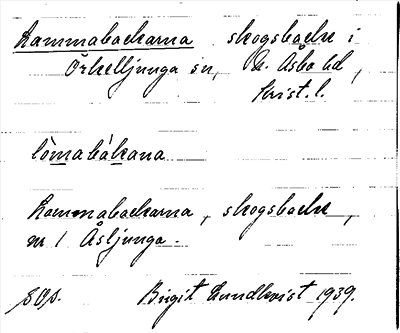 Lammabackarna skogsbacke i
Örkelljunga sn, N. Åsbo hd,
Krist. l.
lòmabákana
Lammabackarna, skogsbacke,
nr 1 Åsljunga.
Birgit Lundkvist 1939.